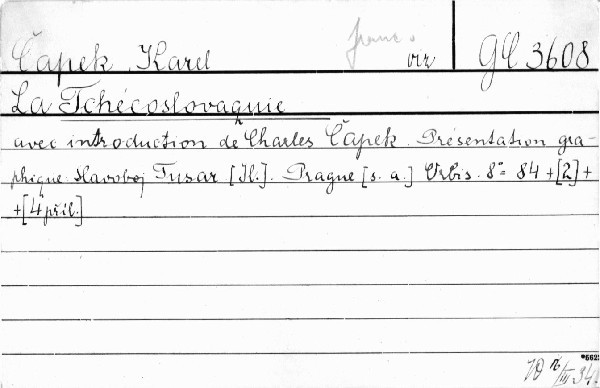 franc.
Čapek Karel viz GČ 3608
La Tchécoslovaquie
avec introduction de Charles Čapek. Présentation gra-
phique Slavoboj Tusar [Il.]. Prague [s. a.] Orbis. 8° 84 + [2] +
+ [4 příl.]
34